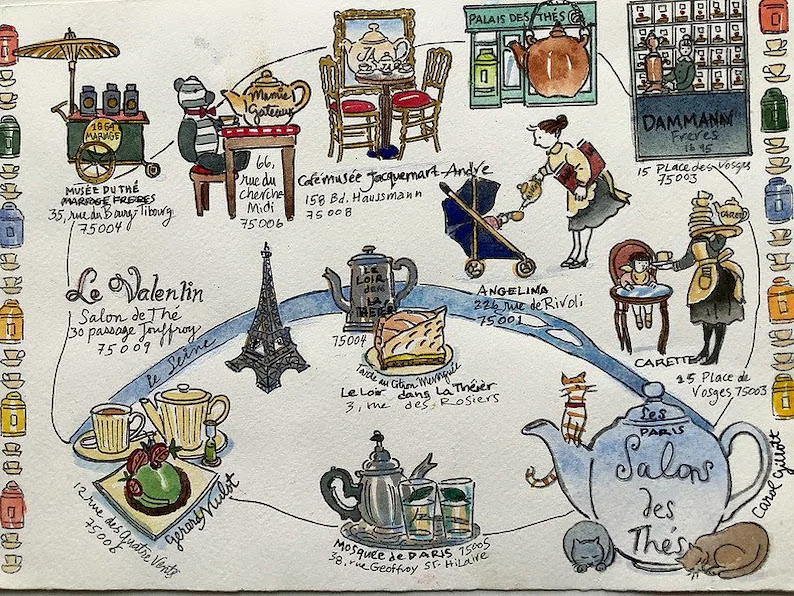 1864
MARIAGE
MUSÉE DU THÉ
MARIAGE FRERES
35, rue du Bourg-Tibourg
75004
Mamie
Gateaux
66,
rue du
cherche
Midi
75006
Cafémusée Jacquemart André
158 Bd. Hausmann
75008
PALAIS DES THÉS
DAMMANN
Freres
15 Place des Vosges
75003
Le Valentin
Salon de Thé
30 passage Jouffroy
75009
le Seine
LE
LOIR
dans
LA
THEIER
75004
Tarte au Citron Meringuée
Le Loir dans La Théier
3, rue des Rosiers
ANGELINA
226 rue de Rivoli
75001
CARETTE
CARETTE
25 Place de
Vosges 75003
12 rue des Quatre Vents
75006
Gerard Mulot
MOSQUÉE de PARIS 75005
38, rue Geoffroy ST. Hilaire
Les
PARIS
Salons
des
Thés
Carol Gillott